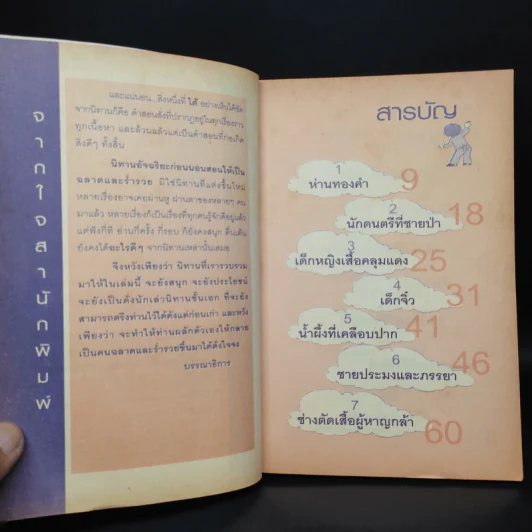 จากใจสำนักพิมพ์
และแน่นอน...สิ่งหนึ่งที่ ได้ อย่างเห็นได้ชัด
จากนิทานก็คือ คำสอนสั่งที่ปรากฏอยู่ในทุกเรื่องราว
ทุกเนื้อหา และล้วนแล้วแต่เป็นคำสอนที่ก่อเกิด
สิ่งดีๆ ทั้งสิ้น
นิทานอัจฉริยะก่อนนอนสอนให้เป็น
ฉลาดและร่ำรวย มิใช่นิทานที่แต่งขึ้นใหม่
หลายเรื่องอาจเคยผ่านหู ผ่านตาของหลายๆ คน
มาแล้ว หลายเรื่องก็เป็นเรื่องที่ทุกคนรู้จักดีอยู่แล้ว
แต่ฟังกี่ที อ่านกี่ครั้ง ก็รอบ ก็ยังคงสนุก ตื่นเต้น
ยังคงได้อะไรดีๆ จากนิทานเหล่านั้นเสมอ
จึงหวังเพียงว่า นิทานที่เรารวบรวม
มาให้ในเล่มนี้ จะยังสนุก จะยังประโยชน์
จะยังเป็นดั่งนักเล่านิทานชั้นเอก ที่จะยัง
สามารถตรึงท่านไว้ได้ดั่งแต่ก่อนเก่า และหวัง
เพียงว่า จะทำให้ท่านผลักตัวเองให้กลาย
เป็นคนฉลาดและร่ำรวยขึ้นมาได้ดังใจจง
บรรณาธิการ
สารบัญ
1
ห่านทองคำ 9
2
นักดนตรีที่ชายป่า 18
3
เด็กหญิงเสื้อคลุมแดง 25
4
เด็กจิ๋ว 31
5
น้ำผึ้งที่เคลือบปาก 41
6
ชายประมงและภรรยา 46
7
ช่างตัดเสื้อผู้หาญกล้า 60